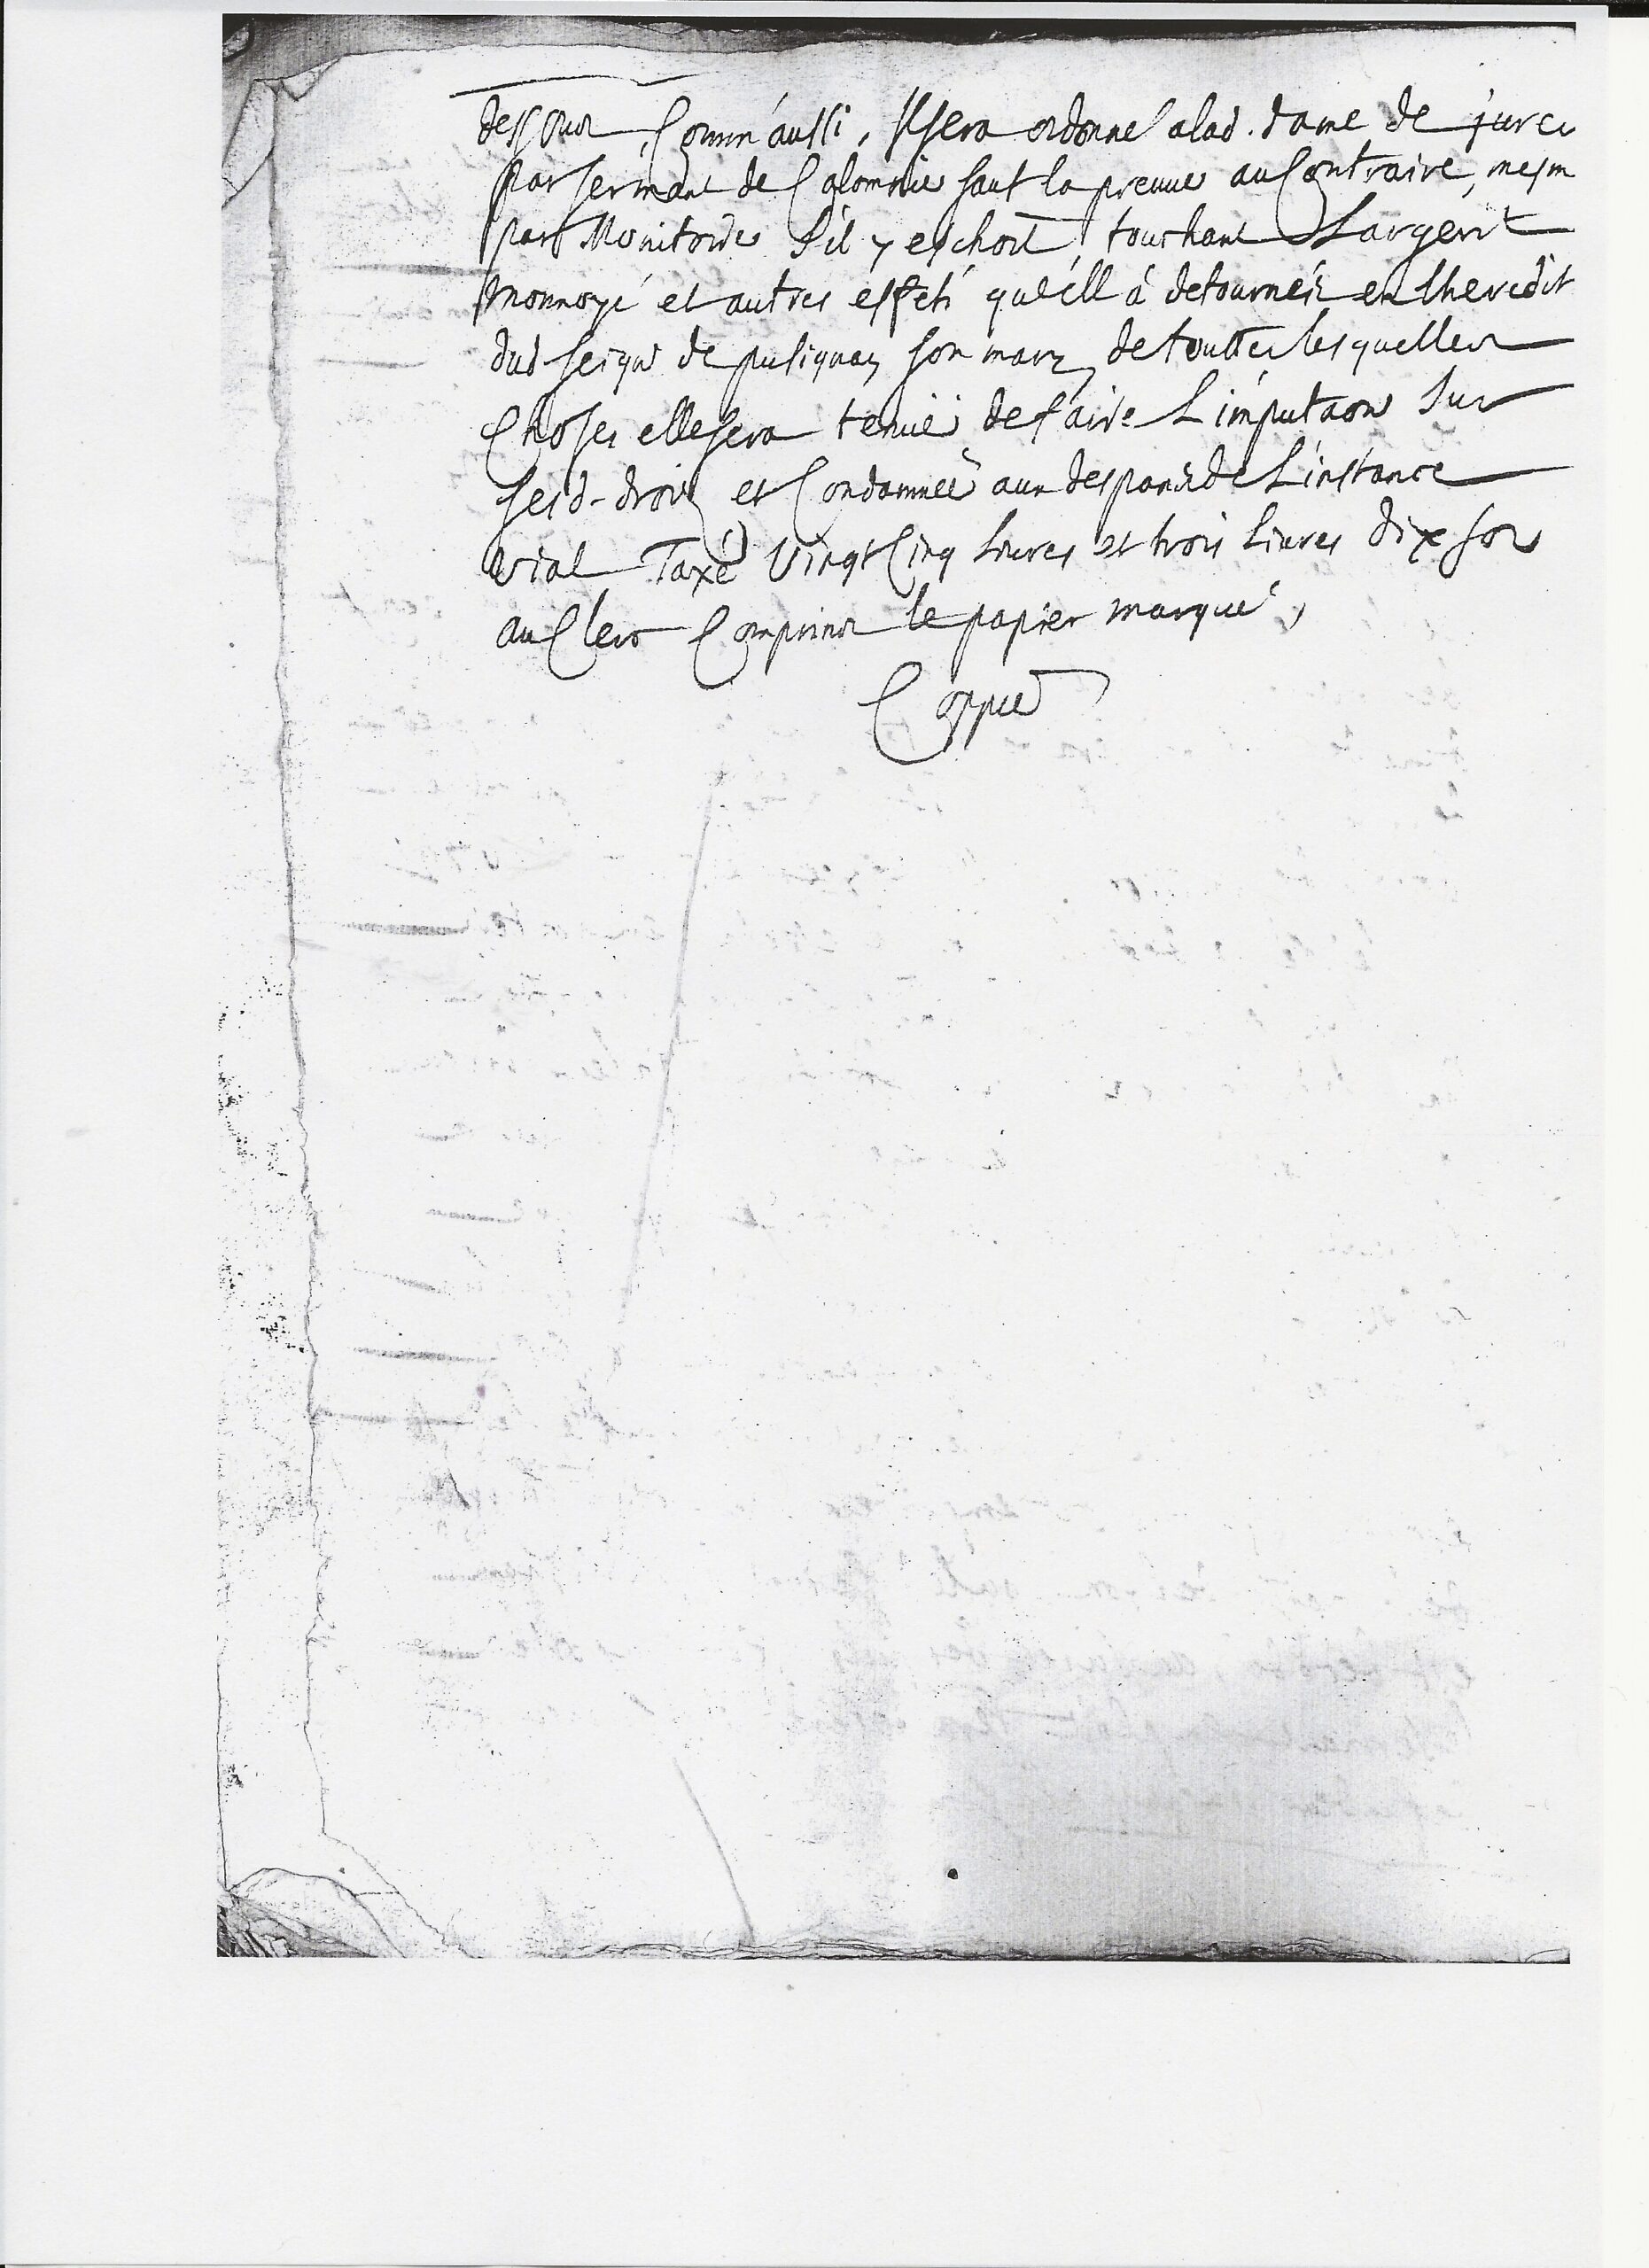 dessous, Comm'aussi, Il sera ordonné a lad. dame de jurer
par serment de Calomnie sauf la preuve au Contraire, mesm
par Monitoire s'il y eschoit, touchant L'argent
Monnoyé et autres effets qu'ell'a detournés en Lheredit
dud seigr de pusignan son mary de toutes lesquelles
Choses elle sera tenue de faire L'imputaon sur
sesd. droits et Condamnée aux despans de L'instance
Vial Taxé Vingt Cinq Livres et trois Livres dix sols
au Clerc Comprins le papier marqué,
Coppie